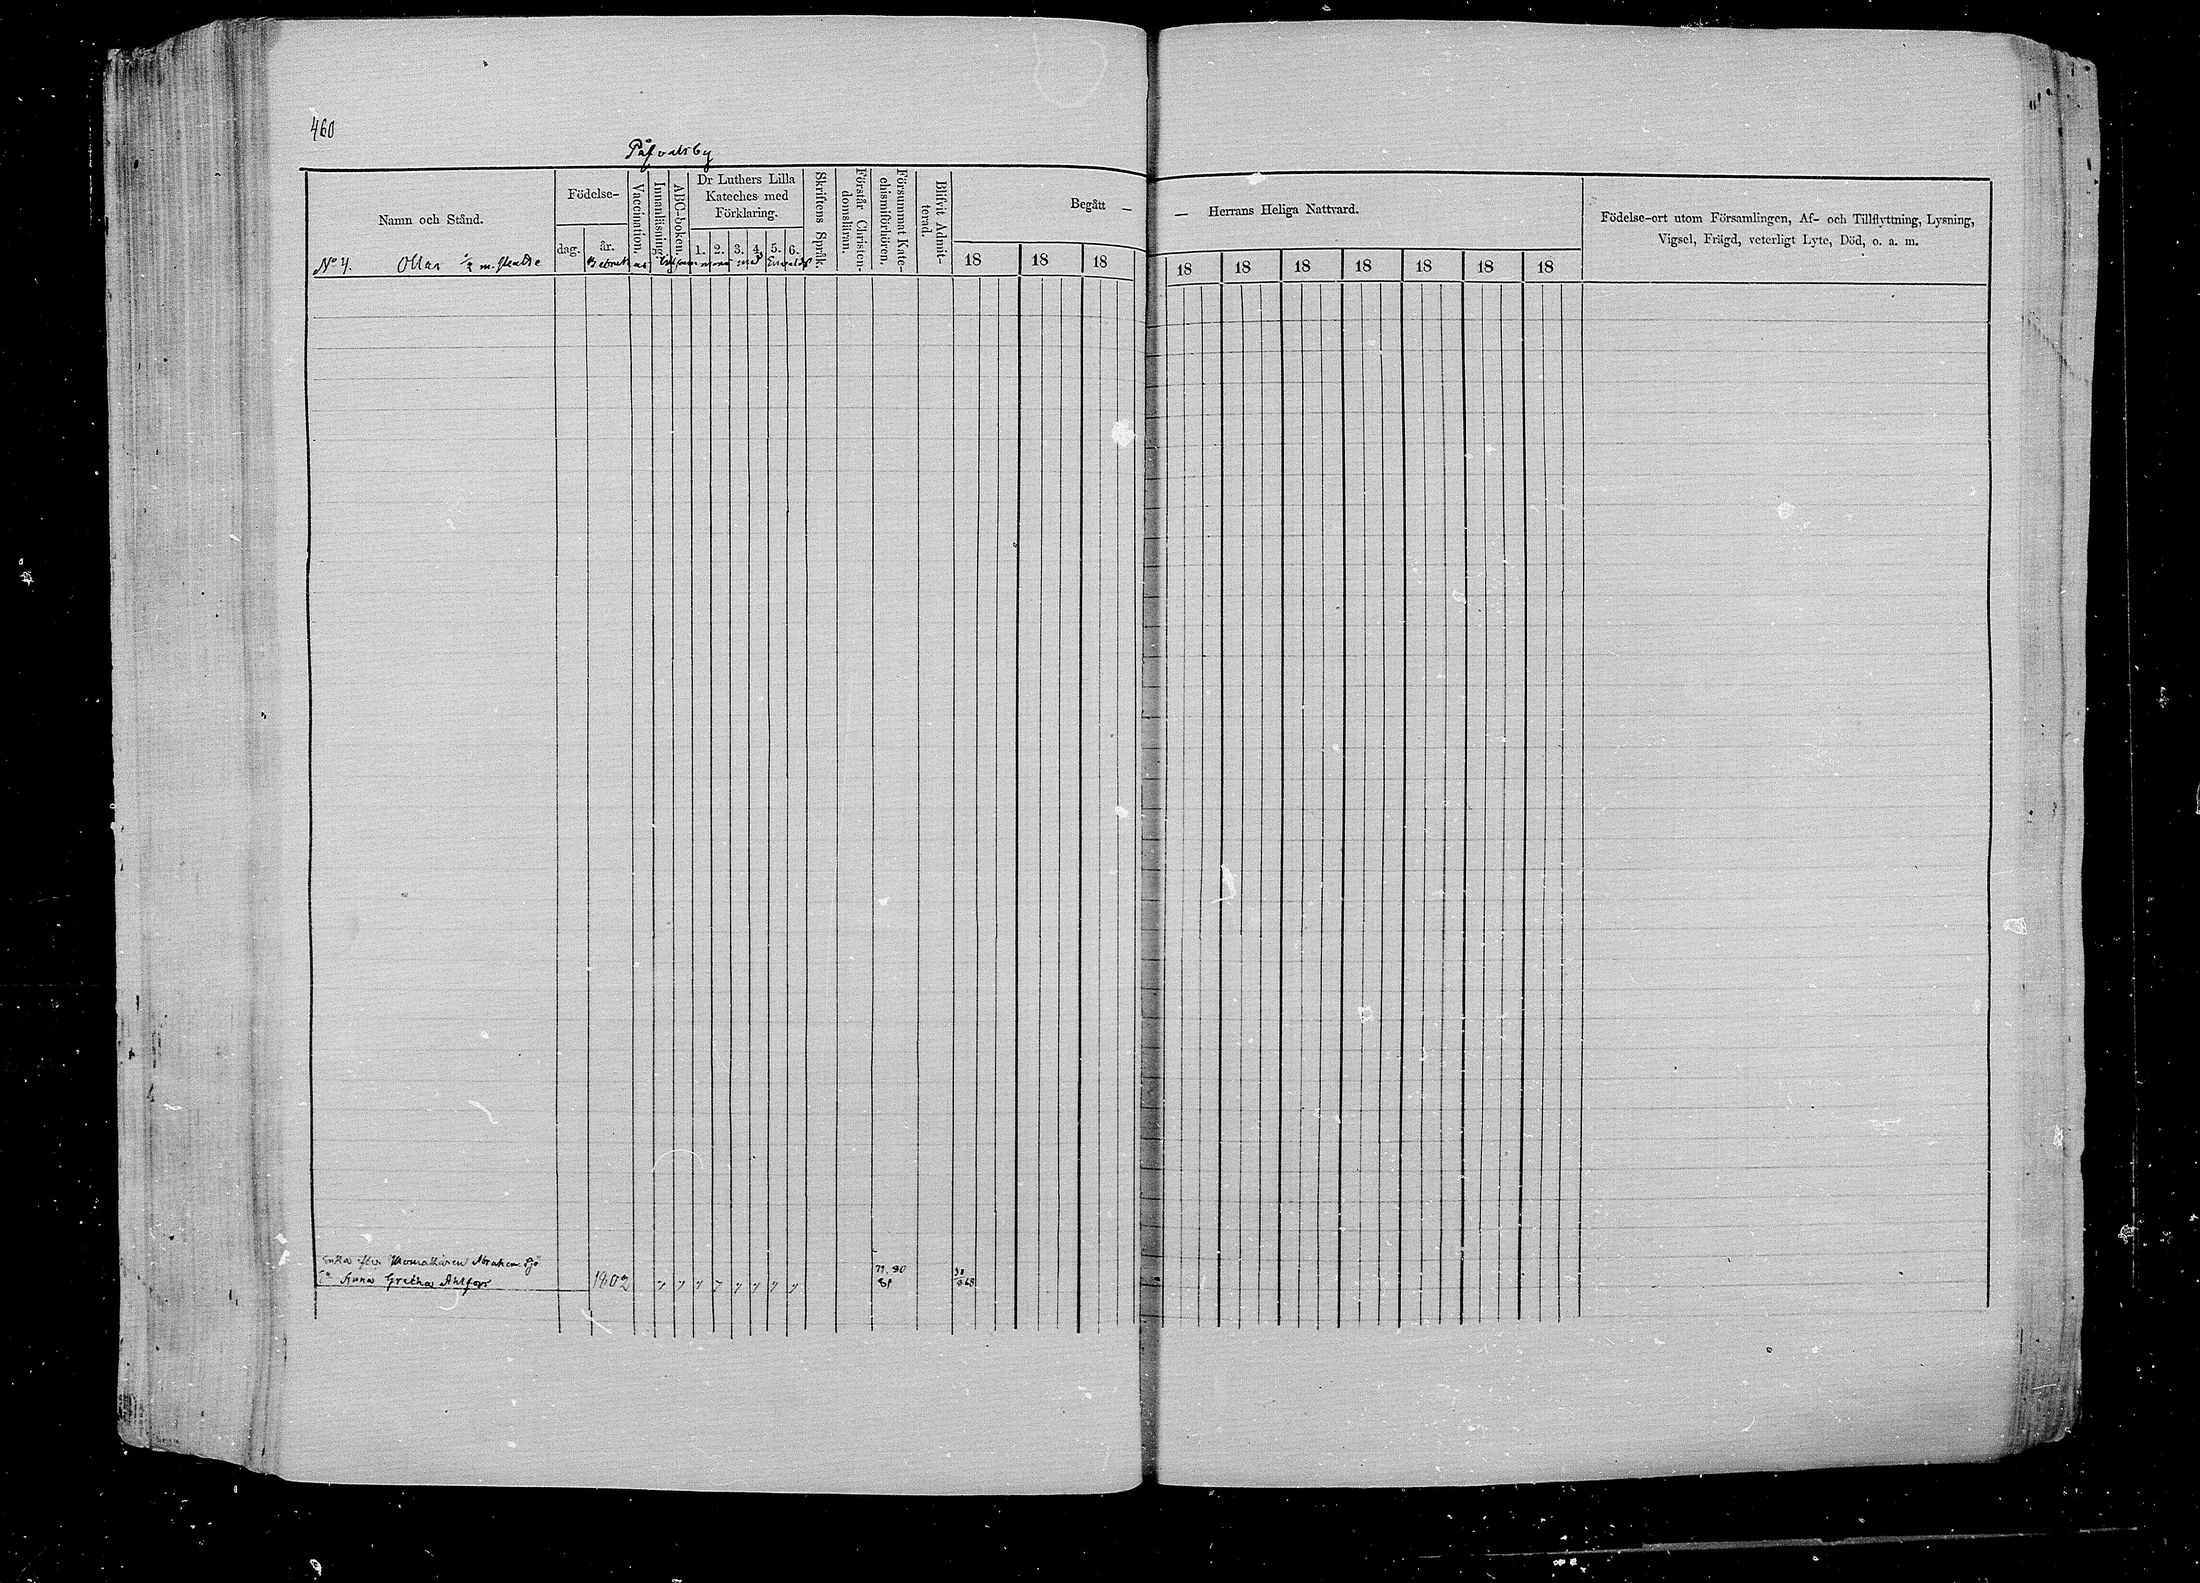 460
Påfvalsby
Namn och Stånd.
Födelse-
dag.
år.
Vaccination.
Innanläsning.
ABC-boken.
Dr Luthers Lilla
Kateches med
Förklaring.
1. 2. 3. 4. 5. 6.
Skriftens Språk.
Förstår Christen-
domsläran.
Försummat Kate-
chismiförhören.
Blifvit Admit-
terad.
Begått —
18 18 18
— Herrans Heliga Nattvard.
18 18 18 18 18 18 18
Födelse-ort utom Församlingen, Af- och Tillflyttning, Lysning,
Vigsel, Frägd, veterligt Lyte, Död, o. a. m.
No 4. Ollas ½ m. med
Enka efter Abraham Sjö
Anna Gretha Ahlfors 1802
79. 80
81